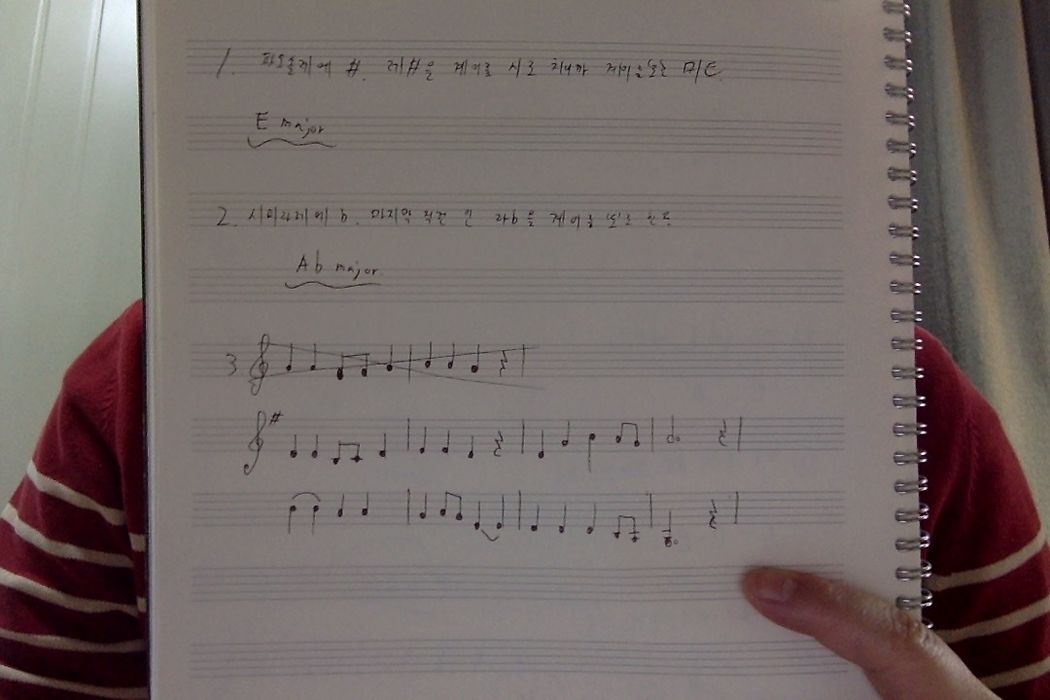 1. 파도솔레에 #. 레#을 계이름 시로 치니까 계이름 도는 미/E.
E major
2. 시미라레에 b. 마지막 직전 인 라b을 계이름 '도'로 한다.
Ab major.
3